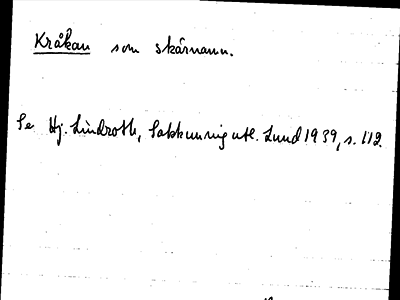 Kråkan som skärnamn.
Se Hj. Lindroth, Sakkunnigutl. Lund 1939, s. 112